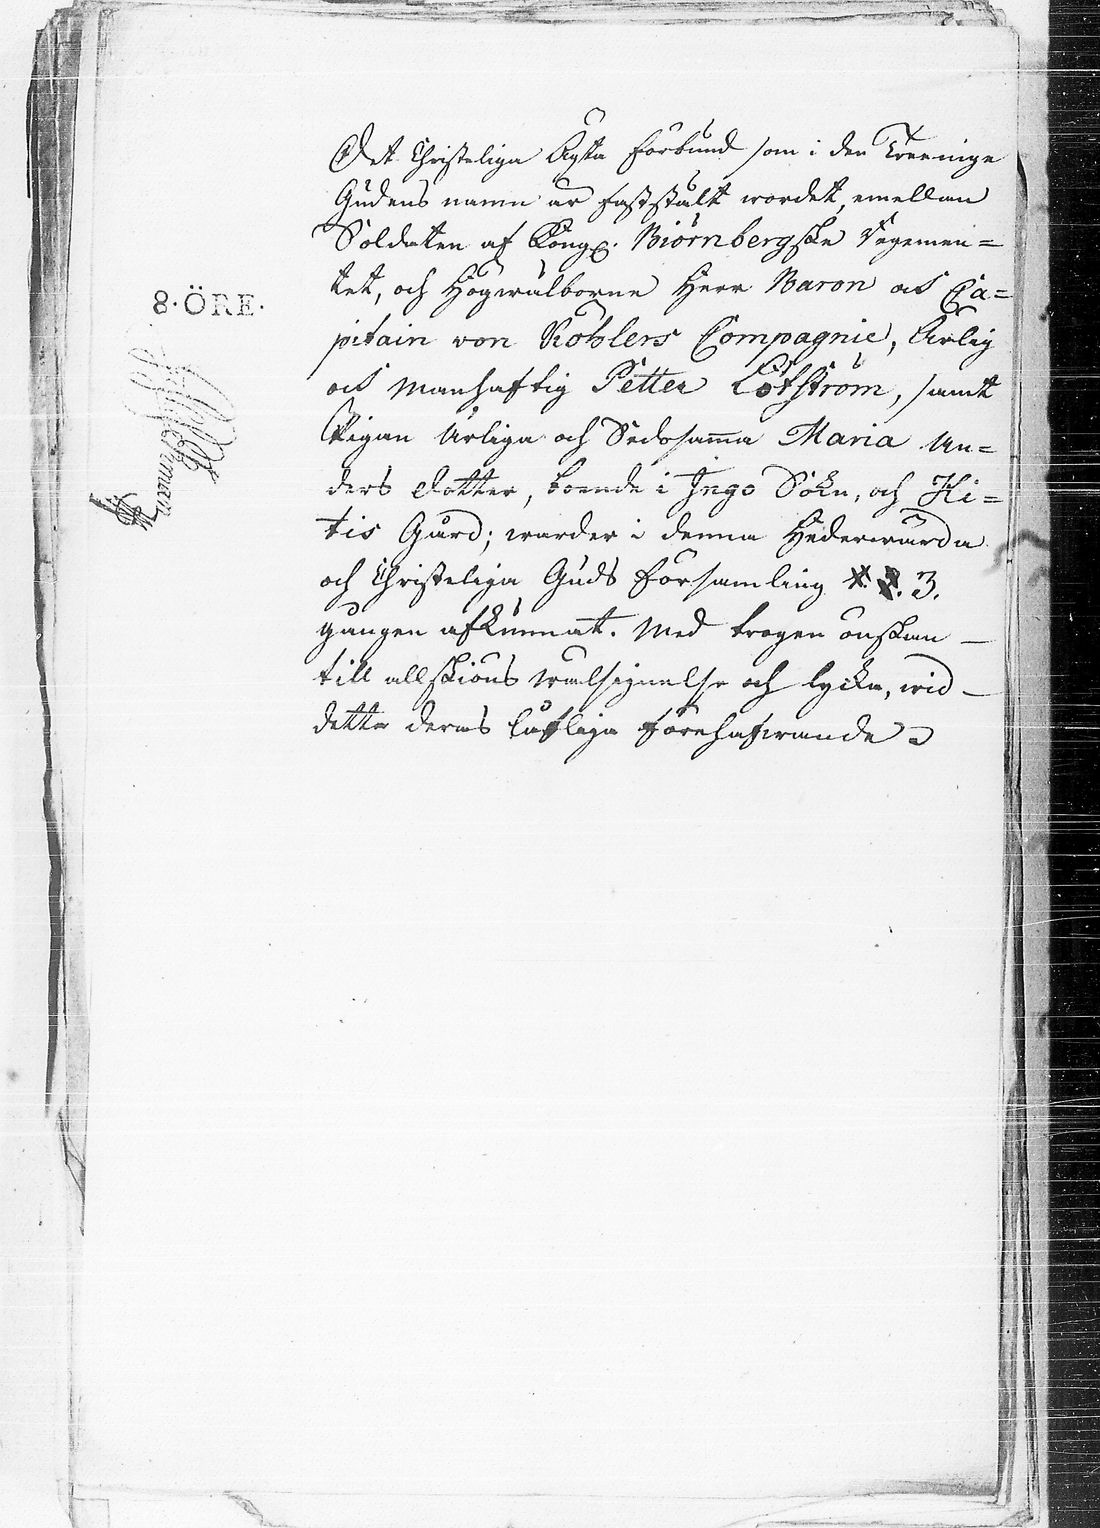 8·ÖRE·
Det Christeliga Ächta förbund som i den Treeninge
Gudens namn är fastställt wordet, emellan
Soldaten af Kongl. Biörnbergske Regemen=
tet, och Högwälborne Herr Baron och Ca=
pitain von Köhlers Compagnie, Ärlig
och Manhaftig Petter Löfström, samt
Pigan Ärliga och Sedosamma Maria An=
ders dotter, boende i Ingo Sokn, och Ki=
tis Gård; warder i denna Hederwärda
och Christeliga Guds församling 3.
gången afkunnat. Med trogen önskan
till allskiöns wälsignelse och lycka, wid
detta deras lofliga förehafwande